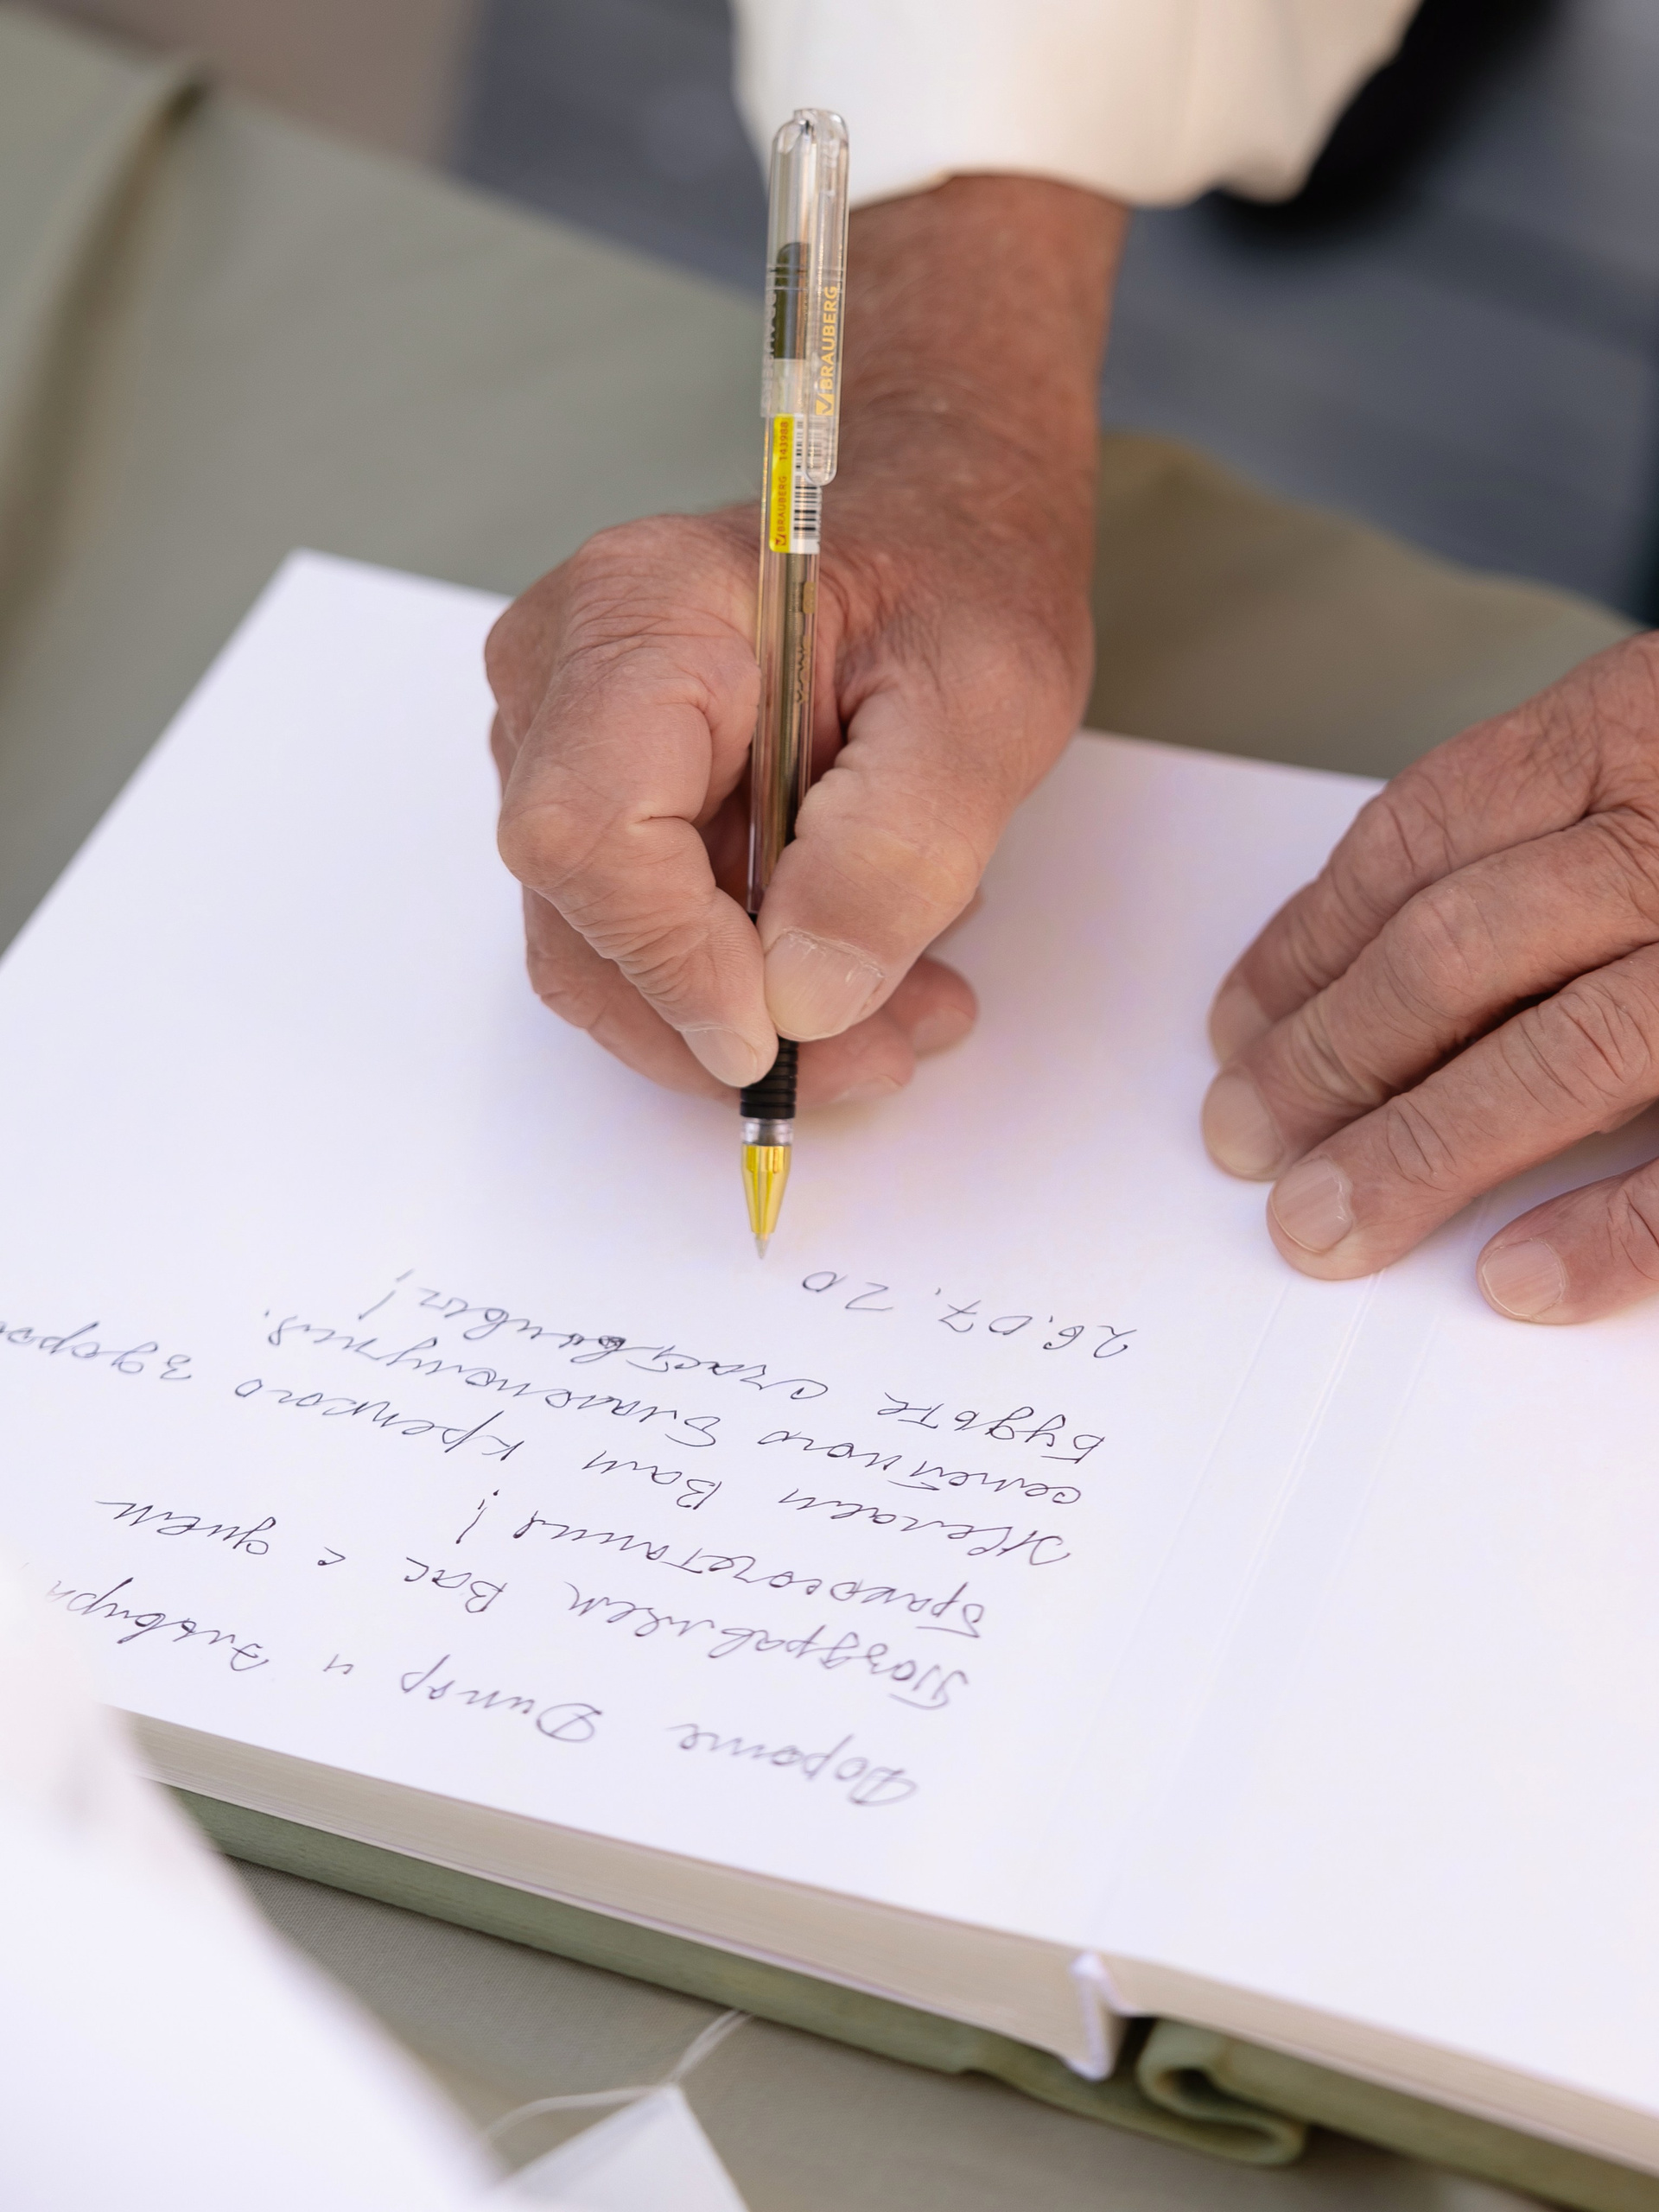 BRAUBERG
BRAUBERG 143988
Дорогие Динар и Эльвира
Поздравляем Вас с днем
бракосочетания!
Желаем Вам крепкого здоров
семейного благополучия.
Будьте счастливы!
26.07.20